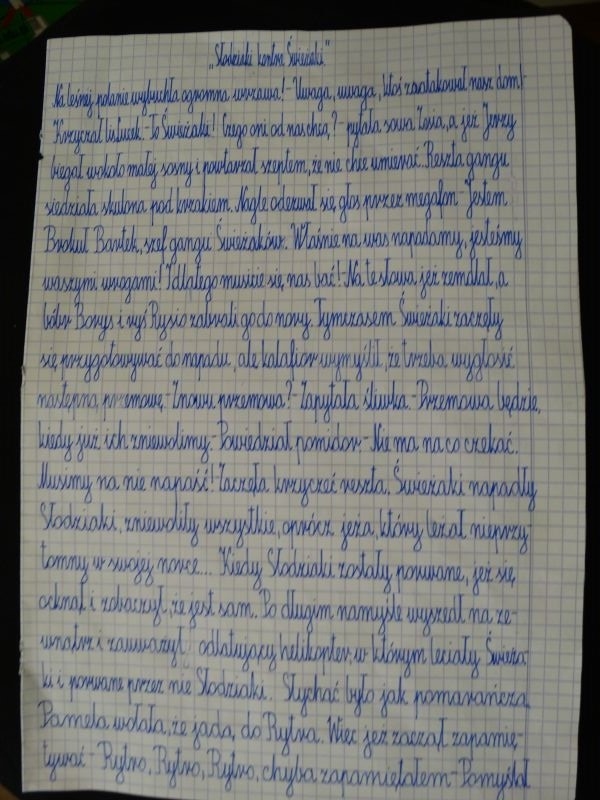 „Słodziaki kontra Świeżaki"
Na leśnej polanie wybuchła ogromna wrzawa! - Uwaga, uwaga, ktoś zaatakował nasz dom! -
Krzyczał lisiurek - to Świeżaki! Czego oni od nas chcą? - pytała sowa Zosia, a jeż Jerzy
biegał wokoło małej sosny i powtarzał szeptem, że nie chce umierać. Reszta gangu
siedziała skulona pod krzakiem. Nagle odezwał się głos przez megafon - Jestem
Brokuł Bartek, szef gangu Świeżaków. Właśnie na was napadamy, jesteśmy
waszymi wrogami! I dlatego musicie się nas bać! - Na te słowa jeż zemdlał, a
bóbr Borys i ryś Rysio zabrali go do nory. Tymczasem Świeżaki zaczęły
się przygotowywać do napadu, ale kalafior wymyślił, że trzeba wygłosić
następną przemowę - Znowu przemowa? - Zapytała śliwka. - Przemowa będzie,
kiedy już ich zniewolimy - Powiedział pomidor. - Nie ma na co czekać.
Musimy na nie napaść! - Zaczęła krzyczeć reszta. Świeżaki napadły
Słodziaki, zniewoliły wszystkie, oprócz jeża, który leżał nieprzy
tomny w swojej norce... Kiedy Słodziaki zostały porwane, jeż się
ocknął i zobaczył, że jest sam. Po długim namyśle wyszedł na ze-
wnątrz i zauważył odlatujący helikopter, w którym leciały Świeża
ki i porwane przez nie Słodziaki. Słychać było jak pomarańcza
Pamela wołała, że jadą do Rytra. Więc jeż zaczął zapamię-
tywać - Rytro, Rytro, Rytro, chyba zapamiętałem - Pomyślał